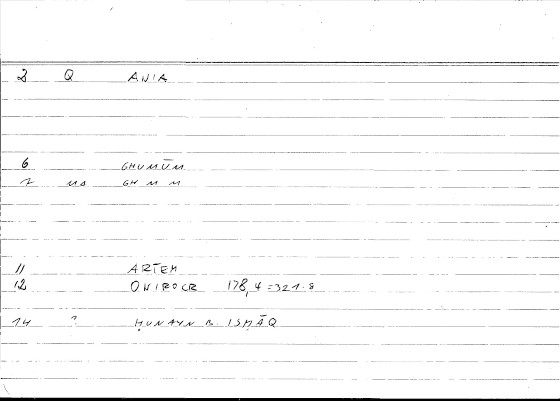 2 Q ANIA
6 GHUMŪM
7 MA GH M M
11 ARTEM
12 ONIROCR 178,4=321.8
14 ? ḤUNAYN B. ISḤĀQ